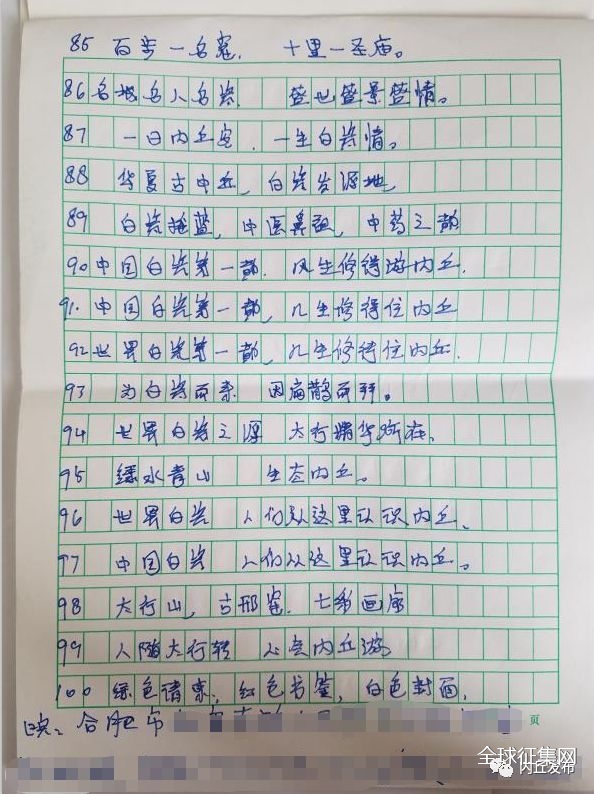 85 百步一名窑. 十里一圣庙。
86 名城名人名瓷 盛世盛景盛情。
87 一日内丘客. 一生白瓷情。
88 华夏古中丘, 白瓷发源地
89 白瓷摇篮, 中医鼻祖, 中药之都
90 中国白瓷第一都. 几生修得游内丘.
91. 中国白瓷第一都, 几生修得住内丘
92 世界白瓷第一都, 几生修得住内丘.
93 为白瓷而来 因扁鹊而拜。
94 世界白瓷之源 太行精华所在.
95 绿水青山 生态内丘。
96 世界白瓷 人们从这里认识内丘、
97 中国白瓷 人们从这里认识内丘。
98 太行山, 古邢窑. 七彩画廊
99 人随太行转 心去内丘游
100 绿色请柬, 红色书签, 白色封面,
合肥市
页
全球征集网
内丘发布